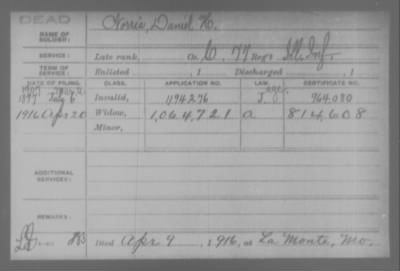 DEAD
NAME OF SOLDIER: Norris, Daniel H.
SERVICE: Late rank, Co. C, 77 Reg't Ill. Inf.
TERM OF SERVICE: Enlisted , 1 Discharged , 1
DATE OF FILING. CLASS. APPLICATION NO. LAW. CERTIFICATE NO.
1907
1897 July 6 Invalid, 1194276 age 964.080
1916 Apr 20 Widow, 1,064,721 a 814,608
Minor,
ADDITIONAL SERVICES:
REMARKS:
Died Apr. 9, 1916, at La Monte, Mo.